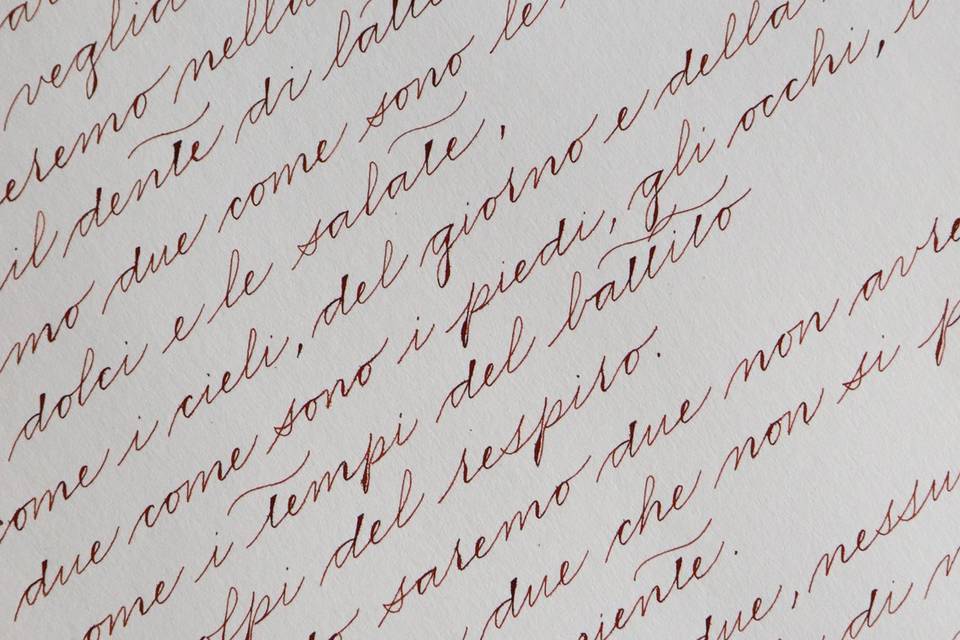 veglia
eremo nella
il dente di latte
mo due come sono le
dolci e le salate,
come i cieli, del giorno e della
due come sono i piedi, gli occhi,
come i tempi del battito
olpi del respiro.
saremo due non avre
due che non si p
iente.
due, nessu
di